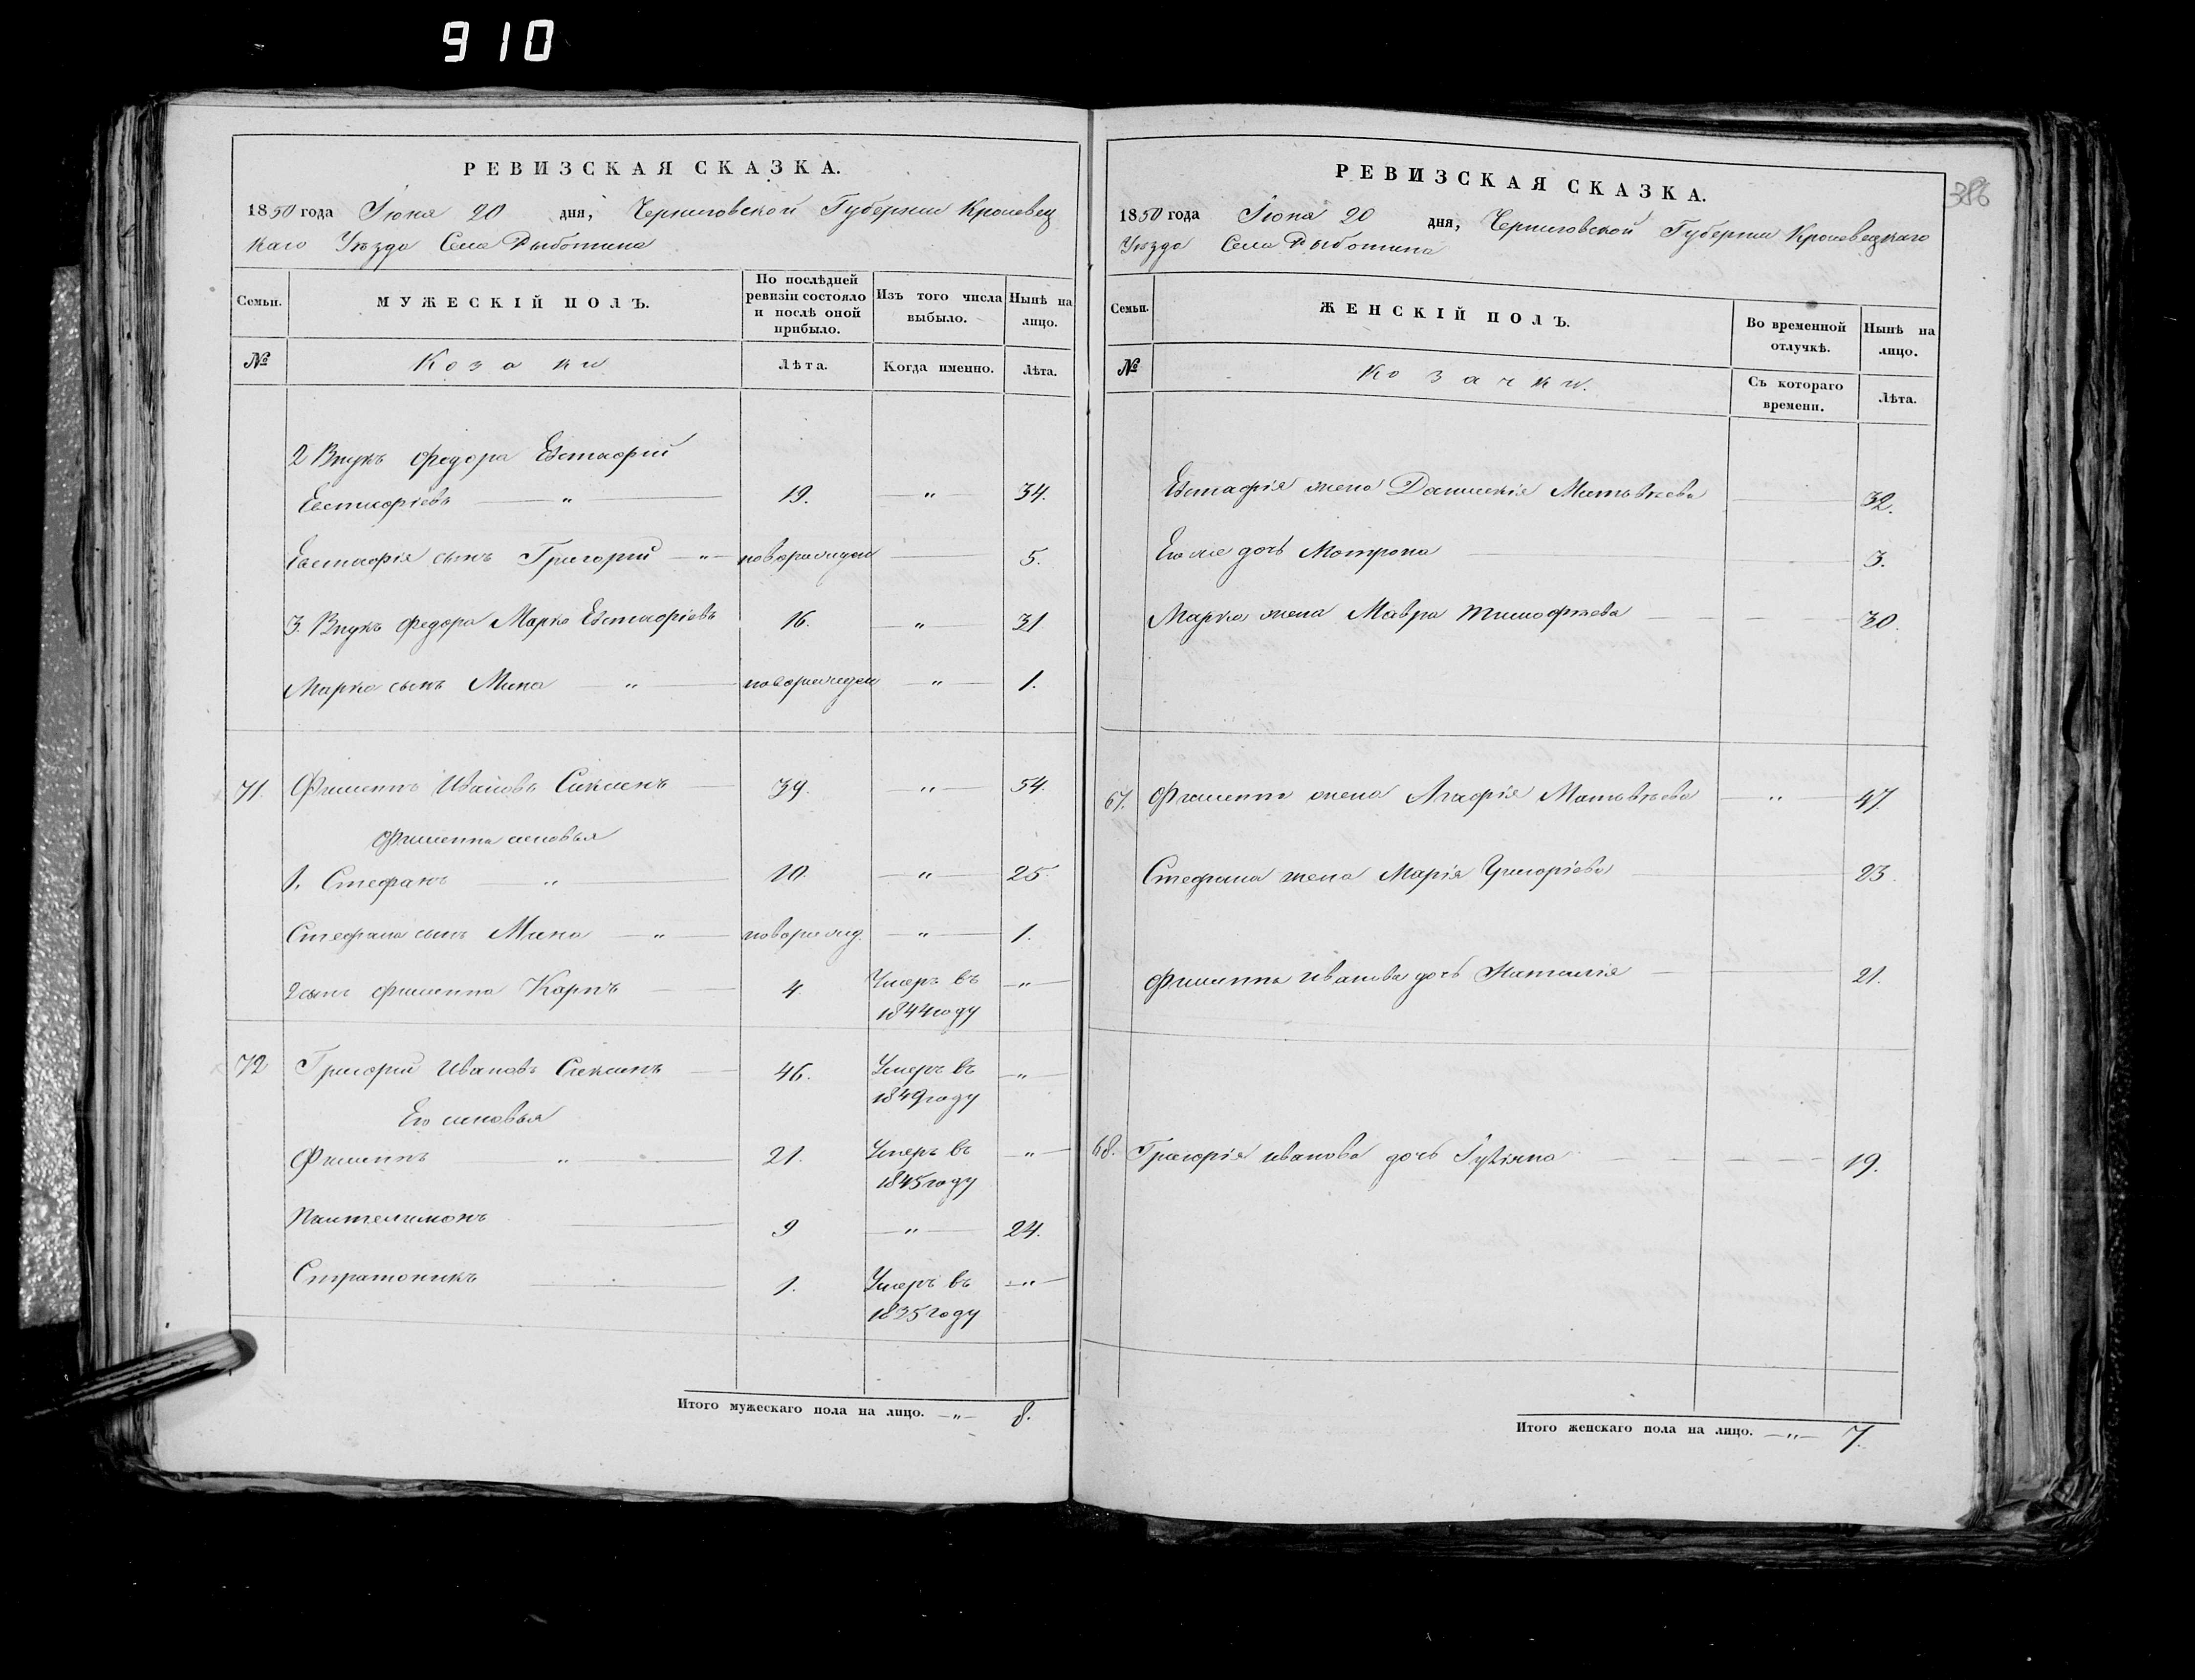 910
РЕВИЗСКАЯ СКАЗКА.
1850 года Июня 20 дня, Черниговской Губернии Кролевец
каго Уѣзда Села Рыботина
Семьи.
МУЖЕСКІЙ ПОЛЪ.
По послѣдней ревизіи состояло и послѣ оной прибыло.
Изъ того числа выбыло.
Нынѣ на лицо.
№
Козаки
Лѣта.
Когда именно.
Лѣта.
2 Внукъ Федора Евстафій
Евстафіевъ — „ — 19. — „ — 34.
Евстафія сынъ Григорій — „ — новорожден — 5.
3. Внукъ Федора Марко Евстафіевъ 16. — „ — 31
Марка сынъ Мина — „ — новорожден — „ — 1.
71. Филиппъ Ивановъ — 39. — „ — 54.
Филиппа сыновья
1. Стефанъ — „ — 10. — „ — 25
Стефана сынъ Мина — „ — новорожд. — „ — 1.
2 сынъ Филиппа Карпъ — 4. Умеръ въ — „ —
1844 году
72 Григорій Ивановъ — 46. Умеръ въ — „ —
1849 году
Его сыновья
Филиппъ — „ — 21. Умеръ въ — „ —
1845 году
Пантелимонъ — 9 — „ — 24.
Стратоникъ — 1. Умеръ въ — „ —
1835 году
Итого мужескаго пола на лицо. — „ — 8.
386
РЕВИЗСКАЯ СКАЗКА.
1850 года Июня 20 дня, Черниговской Губернии Кролевецкаго
Уѣзда Села Рыботина
Семьи.
ЖЕНСКІЙ ПОЛЪ.
Во временной отлучкѣ.
Нынѣ на лицо.
№
Козачки.
Съ котораго времени.
Лѣта.
Евстафія жена Матвѣева — 32.
Его же дочь Мотрона — 3.
Марка жена Мавра Тимофѣева — 30.
67. Филиппа жена Агафія Матвѣева — „ — 47.
Стефана жена Марія Григоріева — 23.
Филиппа Иванова дочь Наталія — 21.
68. Григорія Иванова дочь — 19.
Итого женскаго пола на лицо. — „ — 7.